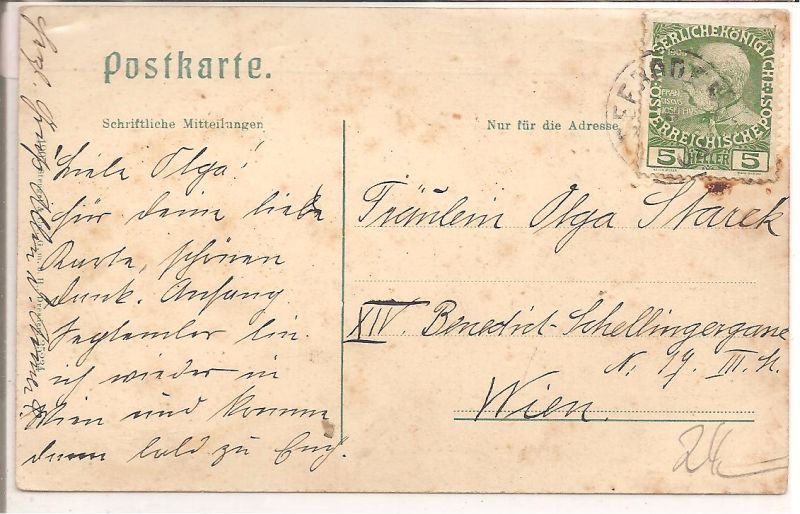 Postkarte.
Schriftliche Mitteilungen
Nur für die Adresse
KAISERLICHEKÖNIGLICHE
ÖSTERREICHISCHE POST
5 HELLER 5
Liebe Olga!
für deine liebe
Karte, schönen
Dank. Anfang
September bin
ich wieder in
Wien und komme
dann bald zu Euch.
Fräulein Olga Starek
XIV. Benedict-Schellingergasse
N. 19. III. St.
Wien.